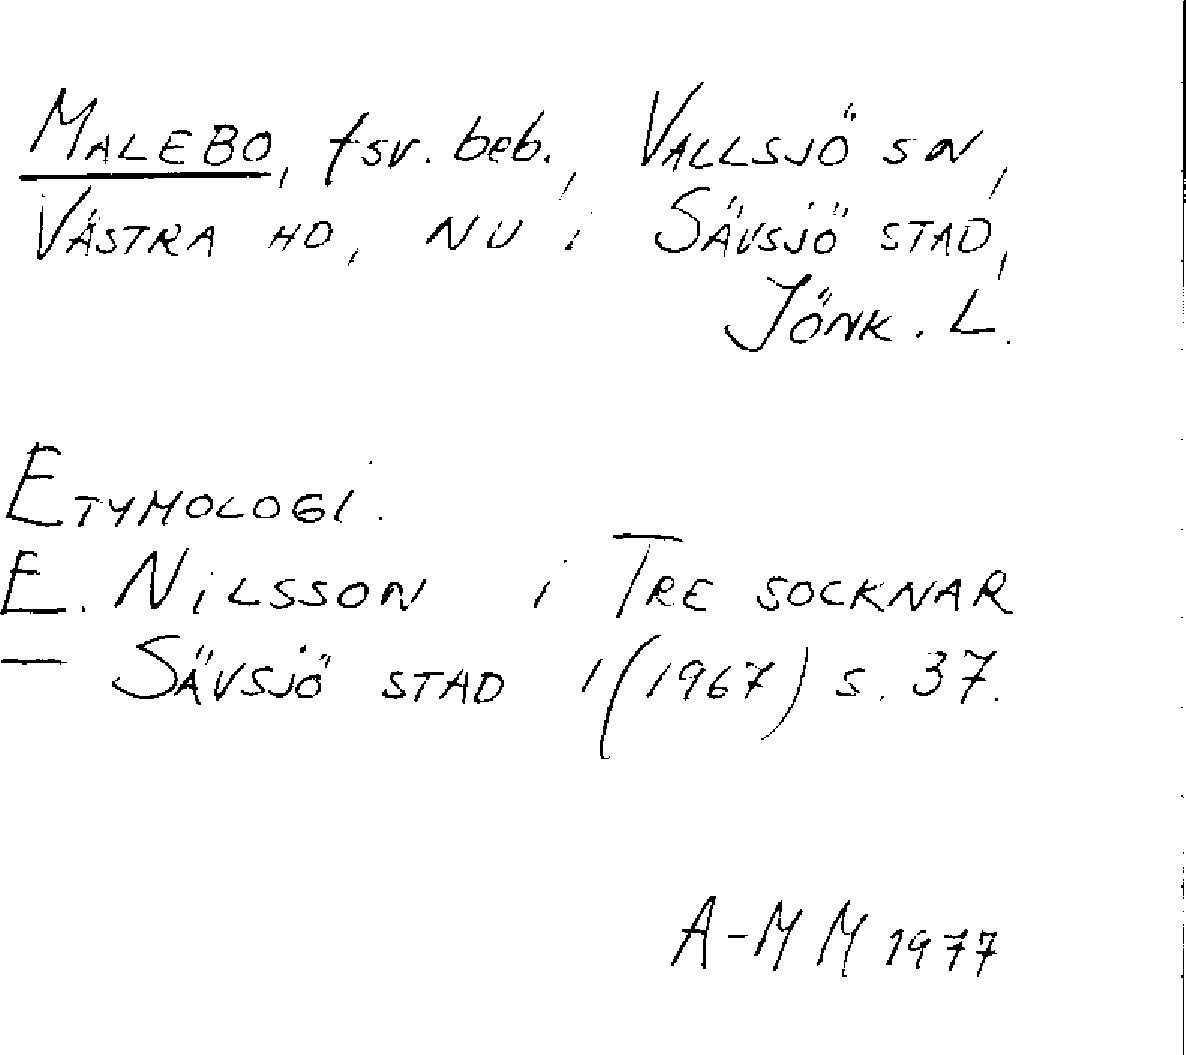 MALEBO, fsv. beb., VALLSJÖ SN,
VÄSTRA HD, NU i SÄVSJÖ STAD,
JÖNK. L.
ETYMOLOGI.
E. NILSSON i TRE SOCKNAR
— SÄVSJÖ STAD 1 (1967) s. 37.
A-M M 1977